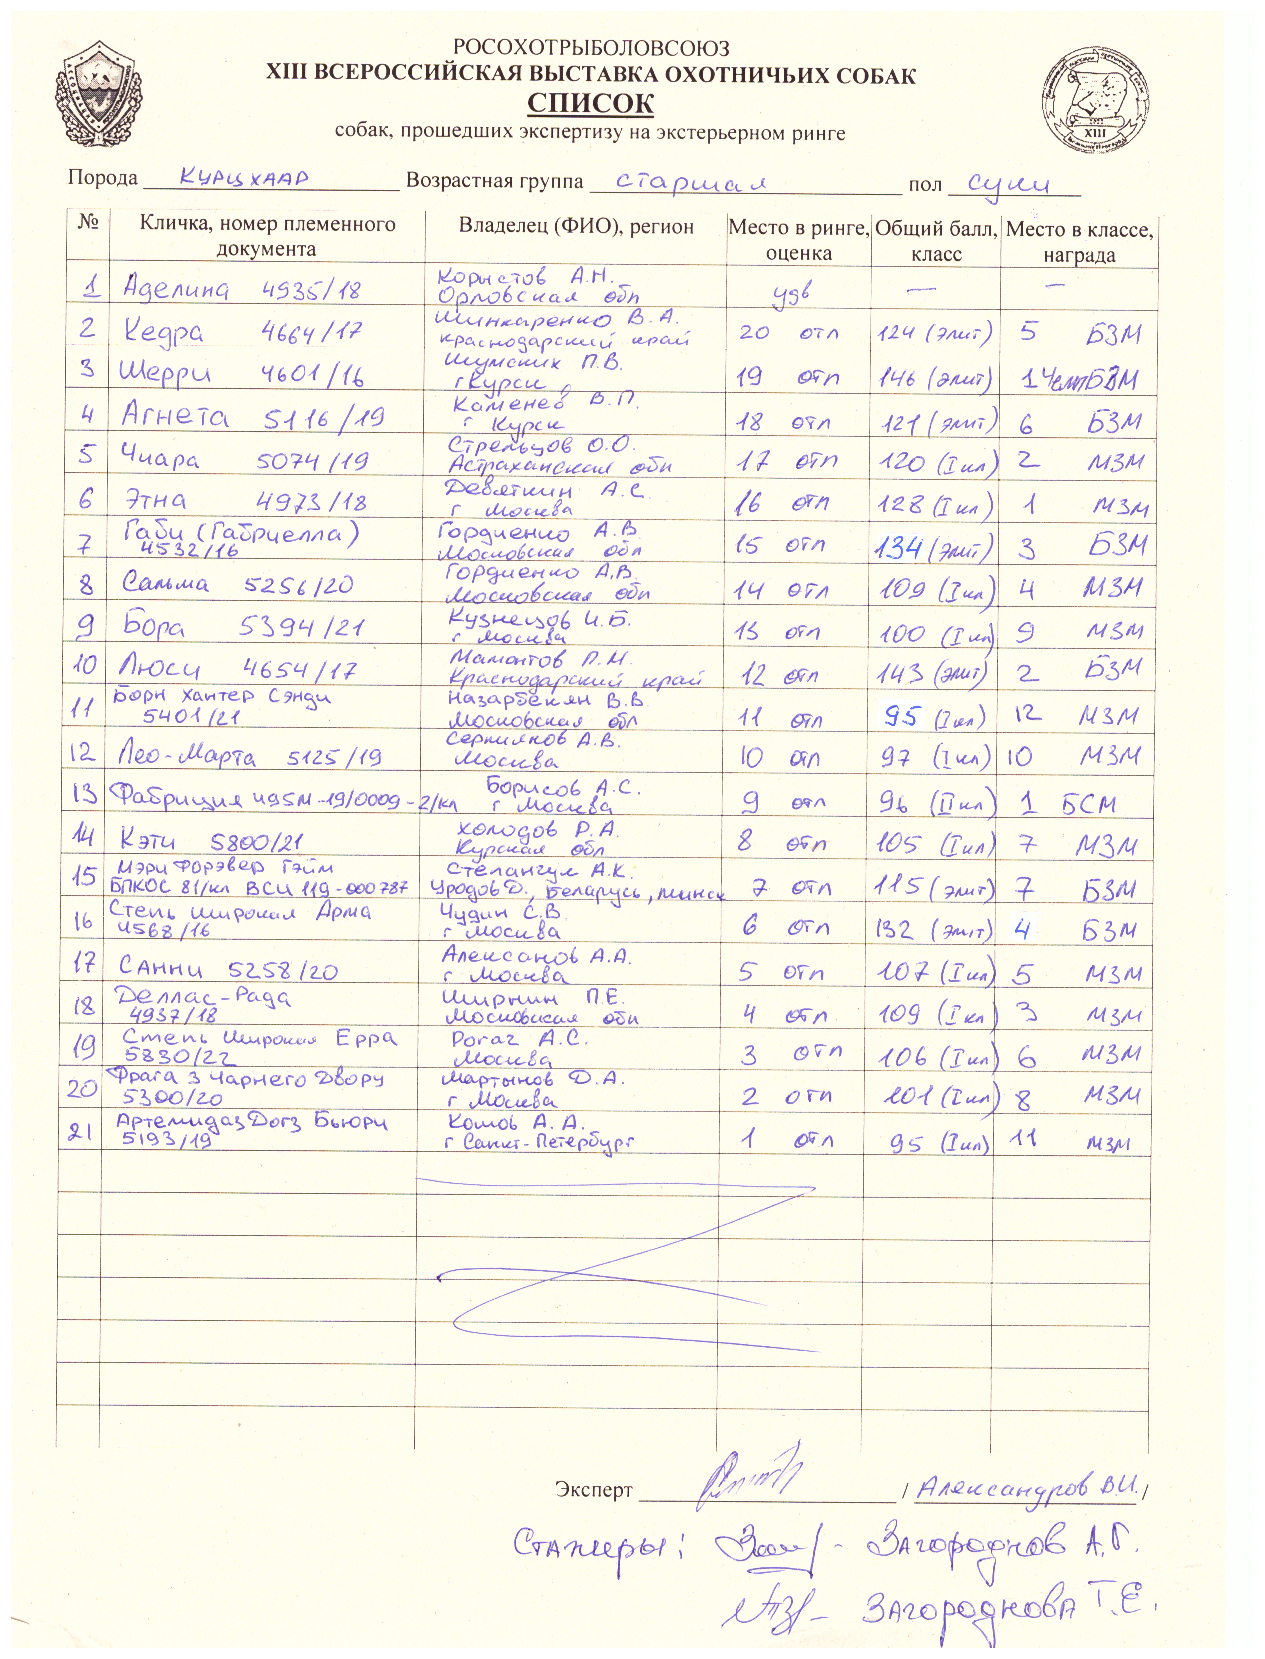 РОСОХОТРЫБОЛОВСОЮЗ
XIII ВСЕРОССИЙСКАЯ ВЫСТАВКА ОХОТНИЧЬИХ СОБАК
СПИСОК
собак, прошедших экспертизу на экстерьерном ринге
XIII
Порода Курцхаар Возрастная группа старшая пол суки
№ Кличка, номер племенного документа Владелец (ФИО), регион Место в ринге, оценка Общий балл, класс Место в классе, награда
1 Аделина 4935/18 Корыстов А.Н. Орловская обл удв — —
2 Кедра 4664/17 Шинкаренко В.А. Краснодарский край 20 отл 124 (Элит) 5 БЗМ
3 Шерри 4601/16 Шумских П.В. г Курск 19 отл 146 (Элит) 1 Чемп БЗМ
4 Агнета 5116/19 Каменев В.П. г Курск 18 отл 121 (Элит) 6 БЗМ
5 Чиара 5074/19 Стрельцов О.О. Астраханская обл 17 отл 120 (I кл) 2 МЗМ
6 Этна 4973/18 Девяткин А.С. г Москва 16 отл 128 (I кл) 1 МЗМ
7 Габи (Габриелла) 4532/16 Гордиенко А.В Московская обл 15 отл 134 (Элит) 3 БЗМ
8 Сальма 5256/20 Гордиенко А.В. Московская обл 14 отл 109 (I кл) 4 МЗМ
9 Бора 5394/21 Кузнецов И.Б. г Москва 13 отл 100 (I кл) 9 МЗМ
10 Люси 4654/17 Мамонтов П.М. Краснодарский край 12 отл 143 (Элит) 2 БЗМ
11 Борн Хантер Сэнди 5401/21 Назарбекян В.В Московская обл 11 отл 95 (I кл) 12 МЗМ
12 Лео-Марта 5125/19 А.В. Москва 10 отл 97 (I кл) 10 МЗМ
13 Фабриция 495М-19/0009-2/кл Борисов А.С. г Москва 9 отл 96 (II кл) 1 БСМ
14 Кэти 5800/21 Холодов Р.А. Курская обл 8 отл 105 (I кл) 7 МЗМ
15 Мэри Форэвер Гэйм БПКОС 81/кл ВСИ 119-000787 А.К. Уродов Д., Беларусь, Минск 7 отл 115 (Элит) 7 БЗМ
16 Степь Широкая Арма 4568/16 Чудин С.В. г Москва 6 отл 132 (Элит) 4 БЗМ
17 Санни 5258/20 Алексанов А.А. г Москва 5 отл 107 (I кл) 5 МЗМ
18 Деллас-Рада 4937/18 Ширнин П.Е. Московская обл 4 отл 109 (I кл) 3 МЗМ
19 Степь Широкая Ерра 5830/22 Рогаг А.С. Москва 3 отл 106 (I кл) 6 МЗМ
20 Фрага З Чарнего Двору 5300/20 Мартынов Д.А. г Москва 2 отл 101 (I кл) 8 МЗМ
21 Артемидаз Догз Бьюри 5193/19 Комов А.А. г Санкт-Петербург 1 отл 95 (I кл) 11 МЗМ
Эксперт / Александров В.И. /
Стажеры: - Загороднов А.Г.
- Загороднова Т.Е.